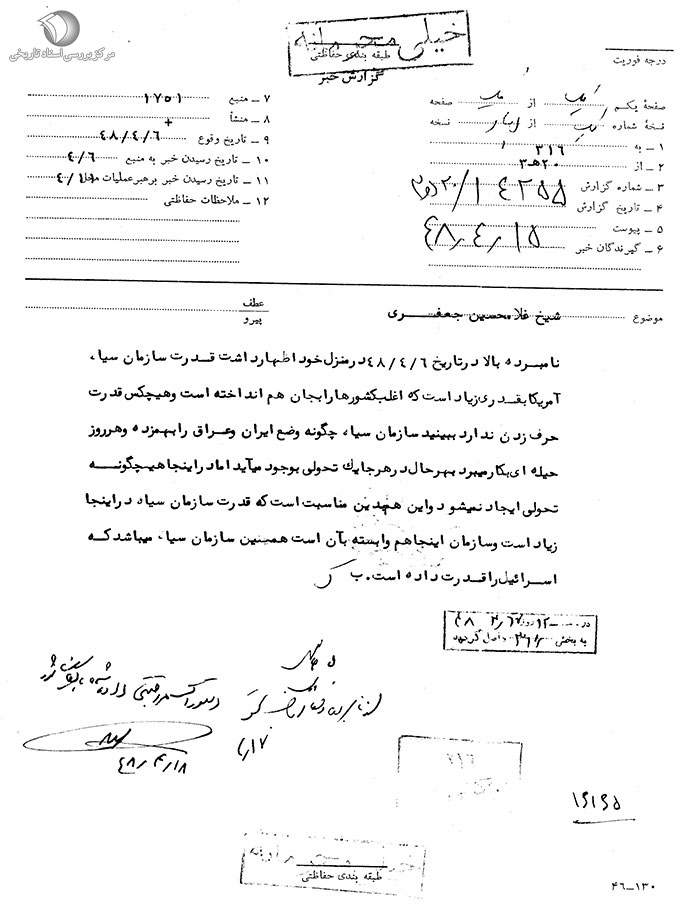 مرکز بررسی اسناد تاریخی
خیلی محرمانه
طبقه بندی حفاظتی
گزارش خبر
درجه فوریت
صفحهٔ یکم یک از یک صفحه
نسخهٔ شماره یک از نسخه
۱ ـ به ۳۱۶
۲ ـ از ۲۰هـ۳
۳ ـ شماره گزارش ۱۴۲۵۵/۲۰هـ۳
۴ ـ تاریخ گزارش ۴۸٫۴٫۱۵
۵ ـ پیوست
۶ ـ گیرندگان خبر
۷ ـ منبع ۱۷۵۱
۸ ـ منشأ +
۹ ـ تاریخ وقوع ۴۸/۴/۶
۱۰ ـ تاریخ رسیدن خبر به منبع ۴/۶
۱۱ ـ تاریخ رسیدن خبر برهبر عملیات محل ۴/۱۱
۱۲ ـ ملاحظات حفاظتی
موضوع شیخ غلامحسین جعفری
عطف
پیرو
نامبرده بالا در تاریخ ۴۸/۴/۶ در منزل خود اظهار داشت قدرت سازمان سیا،
آمریکا بقدری زیاد است که اغلب کشورها را بجان هم انداخته است و هیچکس قدرت
حرف زدن ندارد ببینید سازمان سیا، چگونه وضع ایران و عراق را بهمزده و هر روز
حیله ای بکار میبرد بهر حال در هر جا یك تحولی بوجود میآید اما در اینجا هیچگونه
تحولی ایجاد نمیشود و این همچنین مناسبت است که قدرت سازمان سیا، در اینجا
زیاد است و سازمان اینجا هم وابسته بآن است همسنین سازمان سیا، میباشد که
اسرائیل را قدرت داده است. ب ک
در ساعت ۱۲ روز ۴۸
به بخش ۳۱۶ واصل گردید
۴۸٫۴٫۱۸
۳۱۶
۱۶۱۶۵
طبقه بندی حفاظتی
۴۶ـ۱۳۰